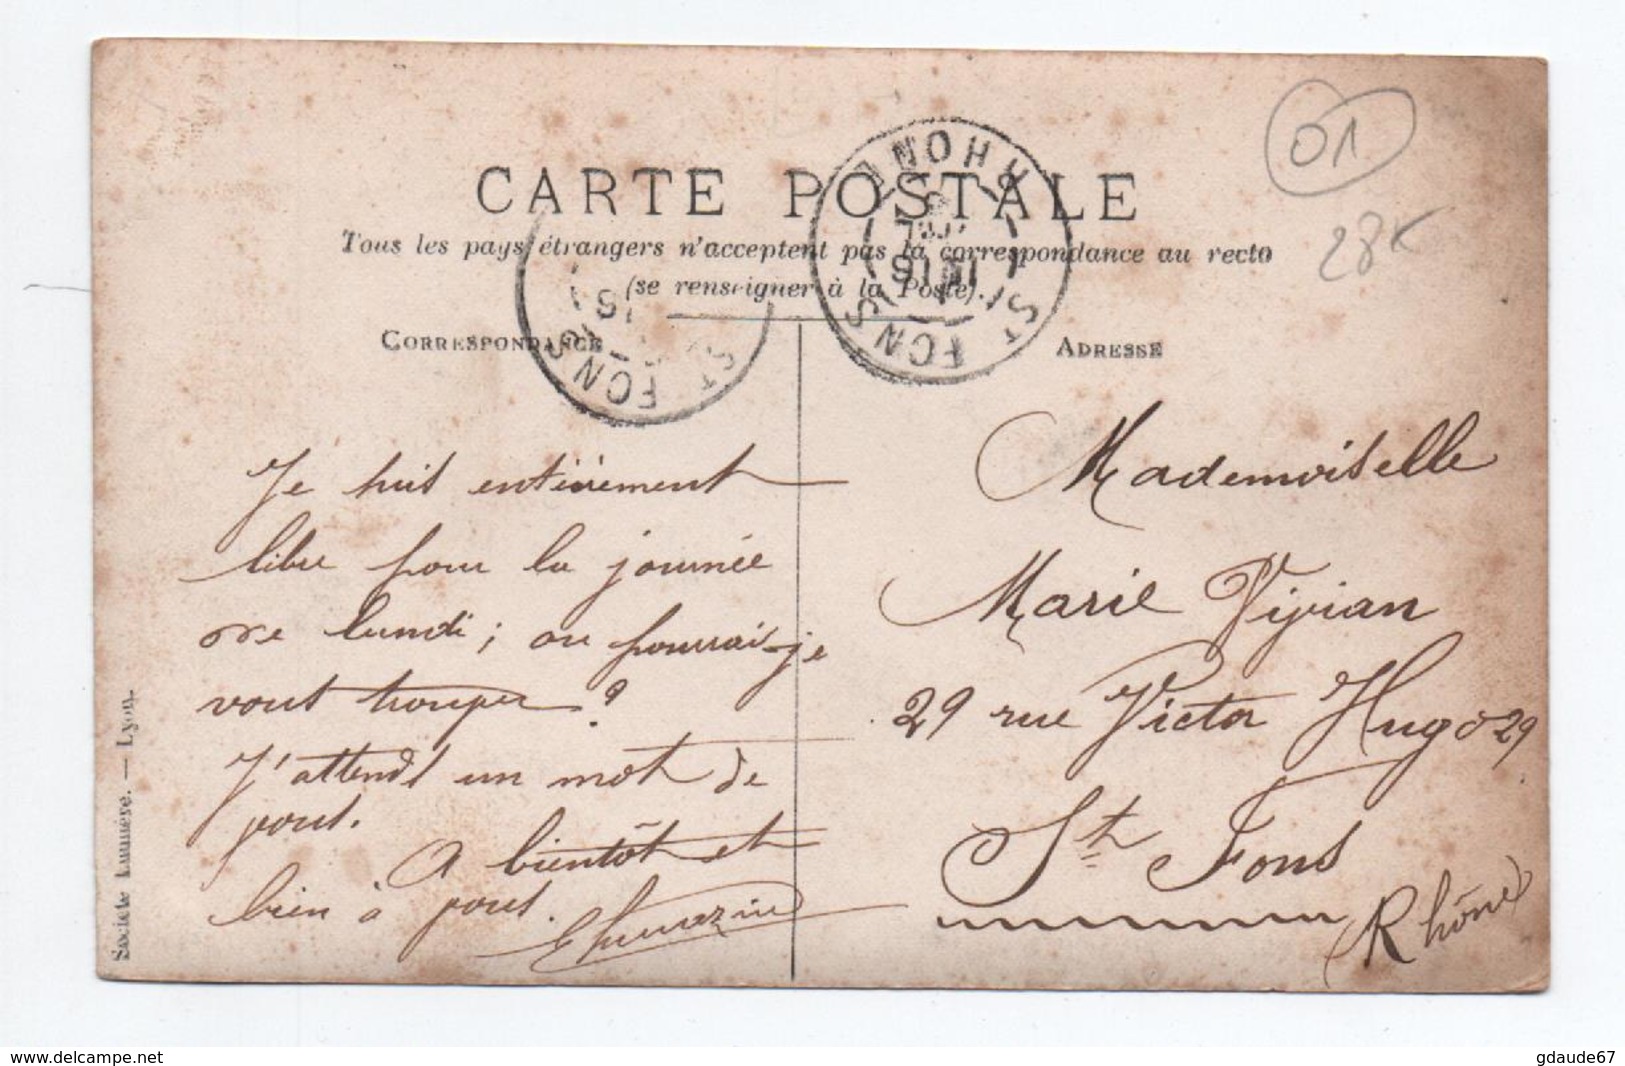 CARTE POSTALE
Tous les pays étrangers n'acceptent pas la correspondance au recto
(se renseigner à la Poste).
CORRESPONDANCE
Je suis entièrement
libre pour la journée
de lundi ; ou pourrai-je
vous trouver ?
J'attends un mot de
vous.
A bientôt et
bien à vous.
ADRESSE
Mademoiselle
Marie Vivian
29 rue Victor Hugo 29
St Fons
Rhône
01
28K
RHONE
ST FONS
ST FONS
Société Lumière. — Lyon.
www.delcampe.net
gdaude67